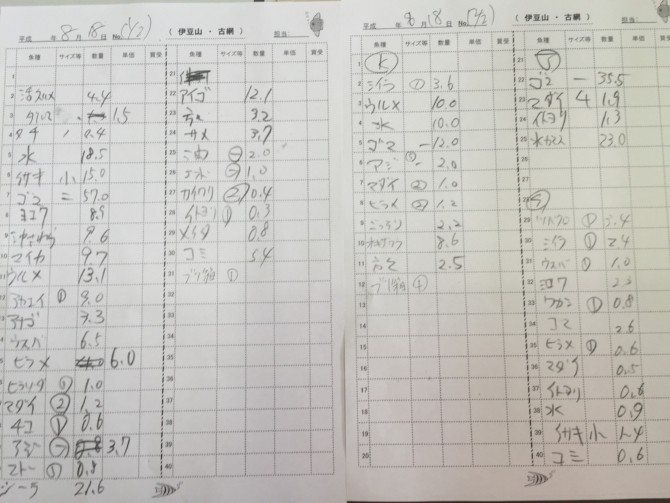 ( 伊豆山 ・ 古網 )
平成 年 8 月 18 日 No. (1/2) 担当:
魚種 サイズ等 数量 単価 買受 魚種 サイズ等 数量 単価 買受
1
2 活スルメ 4.4
3 1.5
4 タチ 0.4
5 水 18.5
6 イサキ 小 15.0
7 ゴマ 二 57.0
8 ヨコワ 8.9
9 9.6
10 マイカ 9.7
11 ウルメ 13.1
12 アカエイ ① 9.0
13 アナゴ 7.3
14 ウスバ 6.5
15 ヒラメ 6.0
ヒラソウダ ① 1.0
マダイ ② 1.2
チコ ① 0.6
アジ 3.7
マトー ① 0.8
シーラ 21.6
21
22 アイゴ 12.1
23 3.2
24 サメ 3.7
25 2.0
26 1.0
27 カイワリ ② 0.4
28 イトヨリ ① 0.3
29 メイチダ 0.8
30 コミ 3.4
31 ブリ ①
32
33
34
35
36
37
38
39
40
( 伊豆山 ・ 古網 )
平成 年 8 月 18 日 No. (2/2) 担当:
魚種 サイズ等 数量 単価 買受 魚種 サイズ等 数量 単価 買受
1 K
2 シイラ ① 3.6
3 ウルメ 10.0
4 水 10.0
5 ゴマ 一 12.0
6 アジ 2.0
7 マダイ ② 1.0
8 ヒラメ ② 1.2
9 2.2
10 8.6
11 2.5
12 ブリ ④
13
14
15
16
17
18
19
20
21
22 ゴマ 一 35.5
23 マダイ 4 1.9
24 イトヨリ 1.3
25 水カマス 23.0
26
27
28
29 ① 3.4
30 シイラ ① 2.4
31 ウスバ ① 1.0
32 ヨコワ 2.3
33 ワカシ ① 0.8
34 コマ 2.6
35 ヒラメ ① 0.6
36 マダイ 0.5
37 イトヨリ 0.6
38 水 0.9
39 イサキ 小 1.4
40 コミ 0.6